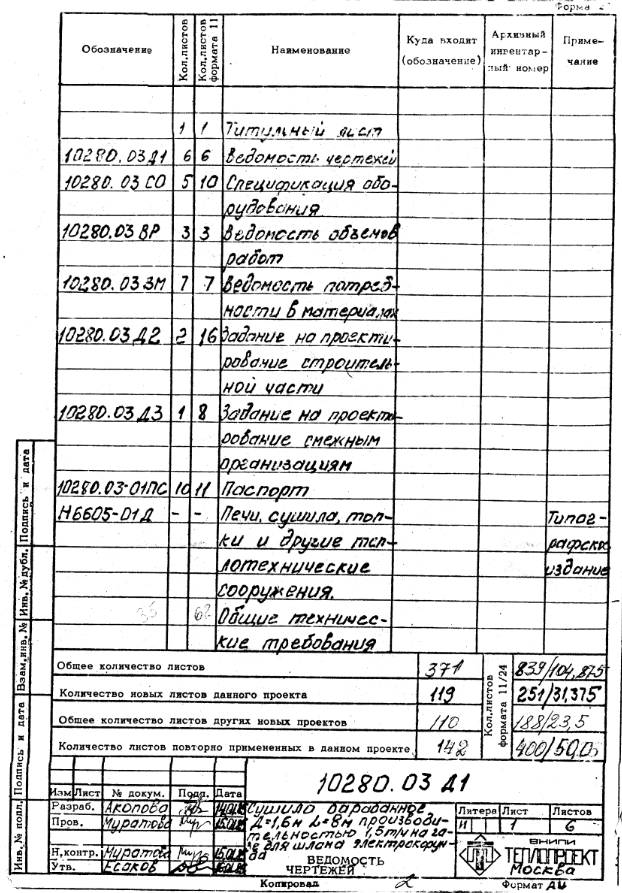 Форма 2
Обозначение Кол.листов Кол.листов формата 11 Наименование Куда входит (обозначение) Архивный инвентарный номер Примечание
1 1 Титульный лист
10280.03Д1 6 6 Ведомость чертежей
10280.03 СО 5 10 Спецификация обо-
рудования
10280.03 ВР 3 3 Ведомость объемов
работ
10280.03 ВМ 7 7 Ведомость потреб-
ности в материалах
10280.03 Д2 2 16 Задание на проекти-
рование строитель-
ной части
10280.03 Д3 1 8 Задание на проекти-
рование смежным
организациям
10280.03-01ПС 10 11 Паспорт
Н6605-01Д - - Печи, сушила, топ- Типог-
ки и другие теп- рафское
лотехнические издание
сооружения.
Общие техничес-
кие требования
Общее количество листов 371 Кол.листов формата 11/24 839/104,875
Количество новых листов данного проекта 119 251/31,375
Общее количество листов других новых проектов 110 188/23,5
Количество листов повторно примененных в данном проекте 142 400/50,0
Инв.№ подл. Подпись и дата Взам.инв.№ Инв.№ дубл. Подпись и дата
10280.03 Д1
Изм Лист № докум. Подп. Дата
Разраб. Акопова
Пров. Муратова
Н.контр. Муратова
Утв. Есаков
Сушило барабанное
Д=1,6м L=8м производи-
тельностью 1,5т/ч на га-
зе для шлама электрокорун-
да
ВЕДОМОСТЬ
ЧЕРТЕЖЕЙ
Литера Лист Листов
И 1 6
ВНИПИ
ТЕПЛОПРОЕКТ
Москва
Копировал Формат А4